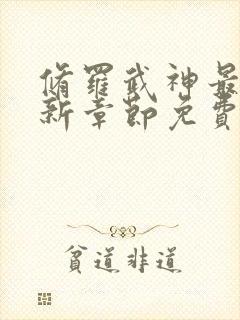 脩羅武神最
新章節免費
貧道非道